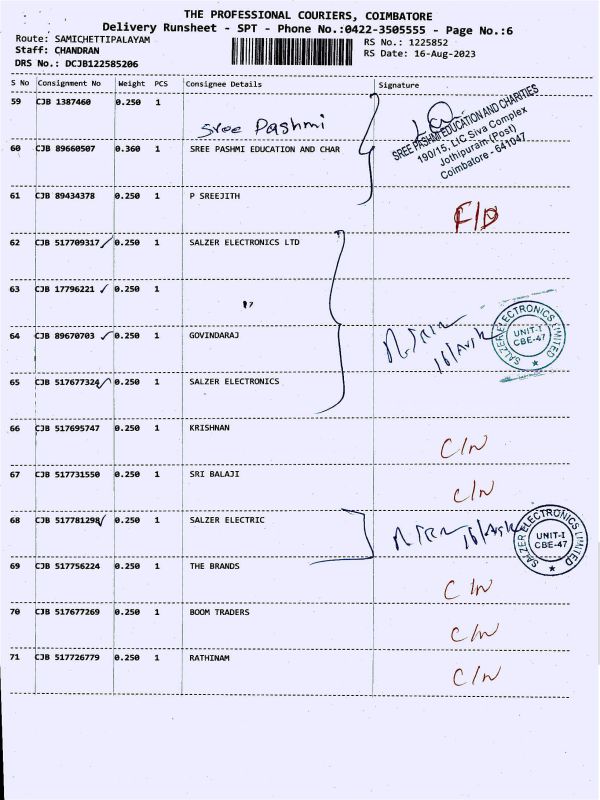 THE PROFESSIONAL COURIERS, COIMBATORE
Delivery Runsheet - SPT - Phone No.:0422-3505555 - Page No.:6
Route: SAMICHETTIPALAYAM
RS No.: 1225852
Staff: CHANDRAN
RS Date: 16-Aug-2023
DRS No.: DCJB122585206
S No Consignment No Weight PCS Consignee Details Signature
59 CJB 1387460 0.250 1
Sree Pashmi
SREE PASHMI EDUCATION AND CHARITIES
190/15, LIC Siva Complex
Jothipuram (Post)
Coimbatore - 641047
60 CJB 89660507 0.360 1 SREE PASHMI EDUCATION AND CHAR
61 CJB 89434378 0.250 1 P SREEJITH
F/D
62 CJB 517709317 0.250 1 SALZER ELECTRONICS LTD
63 CJB 17796221 0.250 1
17
64 CJB 89670703 0.250 1 GOVINDARAJ
SALZER ELECTRONICS LIMITED
UNIT-I
CBE-47
65 CJB 517677324 0.250 1 SALZER ELECTRONICS
66 CJB 517695747 0.250 1 KRISHNAN
C/N
67 CJB 517731550 0.250 1 SRI BALAJI
C/N
68 CJB 517781298 0.250 1 SALZER ELECTRIC
SALZER ELECTRONICS LIMITED
UNIT-I
CBE-47
69 CJB 517756224 0.250 1 THE BRANDS
C/N
70 CJB 517677269 0.250 1 BOOM TRADERS
C/N
71 CJB 517726779 0.250 1 RATHINAM
C/N